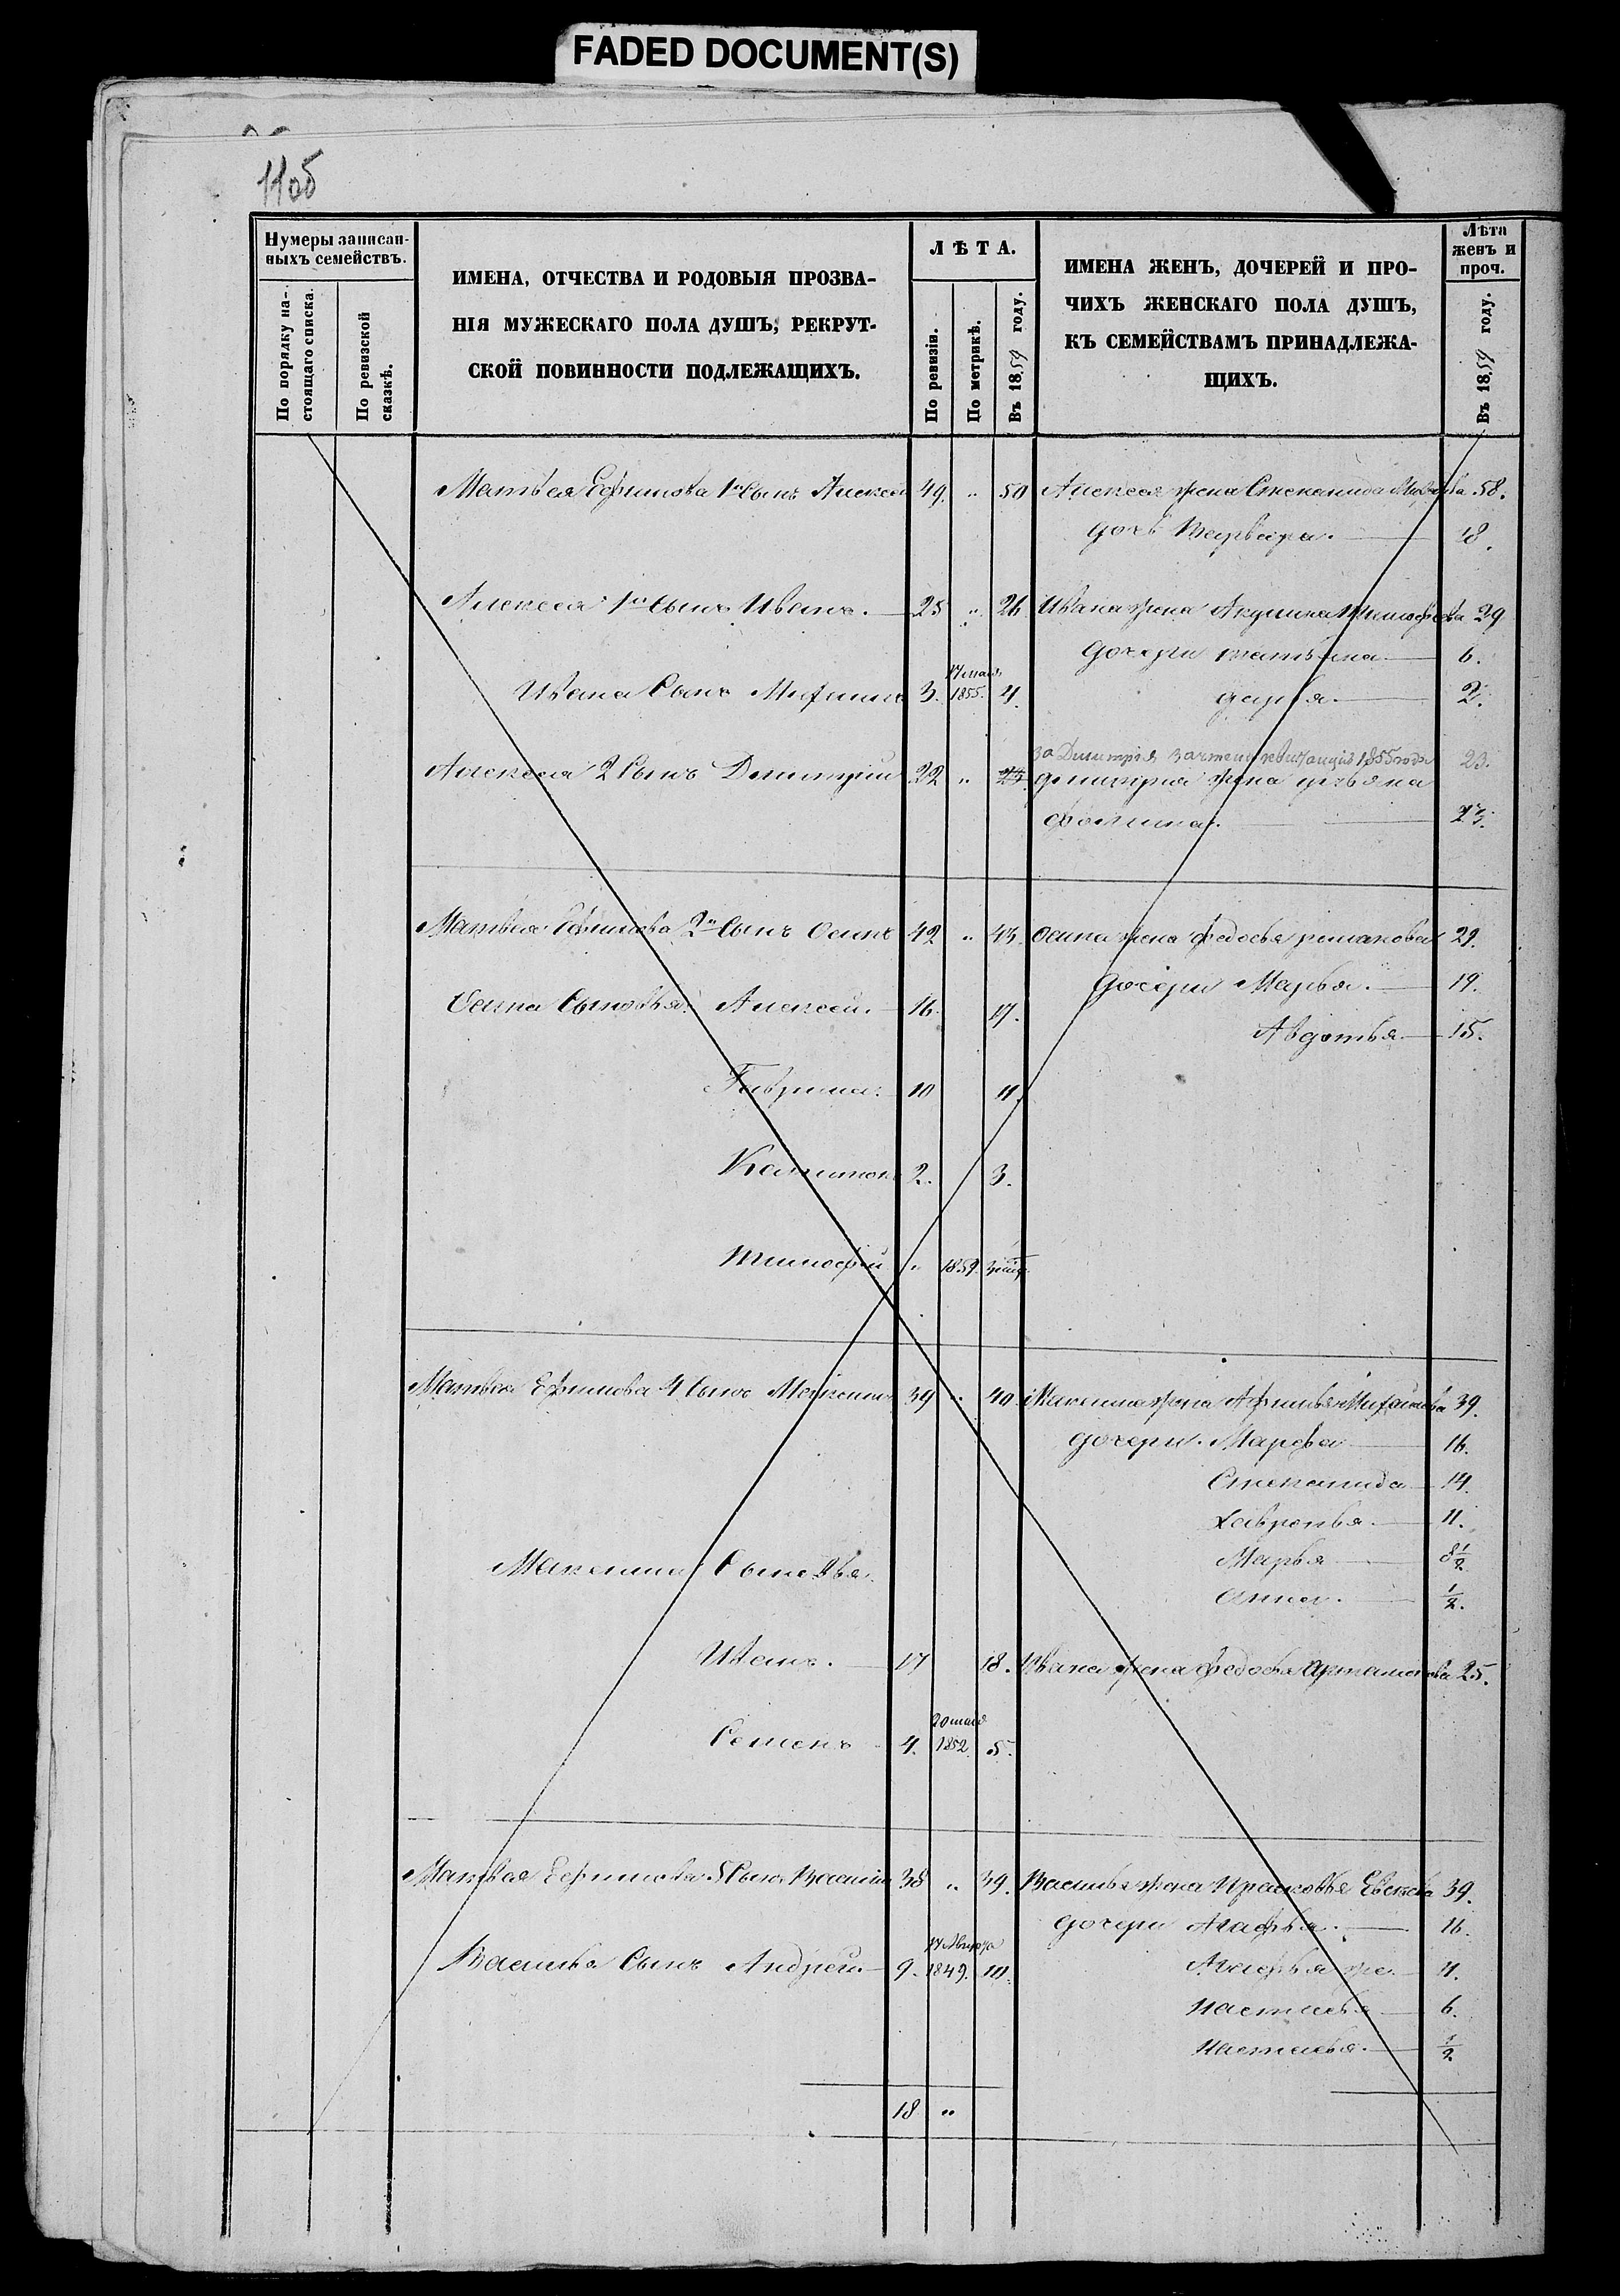 FADED DOCUMENT(S)
11об
Нумеры записан-
ныхъ семействъ.
По порядку на-
стоящаго списка.
По ревизской
сказкѣ.
ИМЕНА, ОТЧЕСТВА И РОДОВЫЯ ПРОЗВА-
НІЯ МУЖЕСКАГО ПОЛА ДУШЪ, РЕКРУТ-
СКОЙ ПОВИННОСТИ ПОДЛЕЖАЩИХЪ.
ЛѢТА.
По ревизіи.
По метрикѣ.
Въ 1859 году.
ИМЕНА ЖЕНЪ, ДОЧЕРЕЙ И ПРО-
ЧИХЪ ЖЕНСКАГО ПОЛА ДУШЪ,
КЪ СЕМЕЙСТВАМЪ ПРИНАДЛЕЖА-
ЩИХЪ.
Лѣта
женъ и
проч.
Въ 1859 году.
Матвея Ефимова 1й Сынъ Алексей 49. " 50 Алексея жена Степанида 58.
дочь Варвара. 18.
Алексея 1й Сынъ Иванъ. 25 " 26 Ивана жена Акулина Тимофеева 29
дочери татьяна 6.
Ивана Сынъ 3. 17 мая 1855. 4.
дарья. 2.
за Димитрія зачтена квитанція 1855 года 23.
Алексея 2 Сынъ Димитрій 22 " 23. Димитрія жена ульяна
фомина. 23.
Матвея Ефимова 2й Сынъ Осипъ 42 " 43. Осипа жена федосья романова 29.
дочери Марья. 19.
Осипа Сыновья: Алексей. 16. 17.
Авдотья. 15.
Гаврила. 10 11.
2. 3.
тимофей " 1859.
Матвея Ефимова 4 Сынъ Максимъ 39 " 40. Максима жена Афимья Михайлова 39.
дочери. Марфа 16.
Степанида 14.
Хавронья. 11.
Марья 8½
Максима Сыновья.
анна. ½.
Иванъ. 17 18. Ивана жена федосья Артамонова 25.
Семенъ 4. 20 мая 1852. 5.
Матвея Ефимова 5 Сынъ Василій 38 " 39. Василья жена Прасковья 39.
дочери Агафья. 16.
Василья Сынъ Андрей. 9. 17 Августа 1849. 10.
Агафья же. 11.
настасья 6.
настасья. ½
18 "